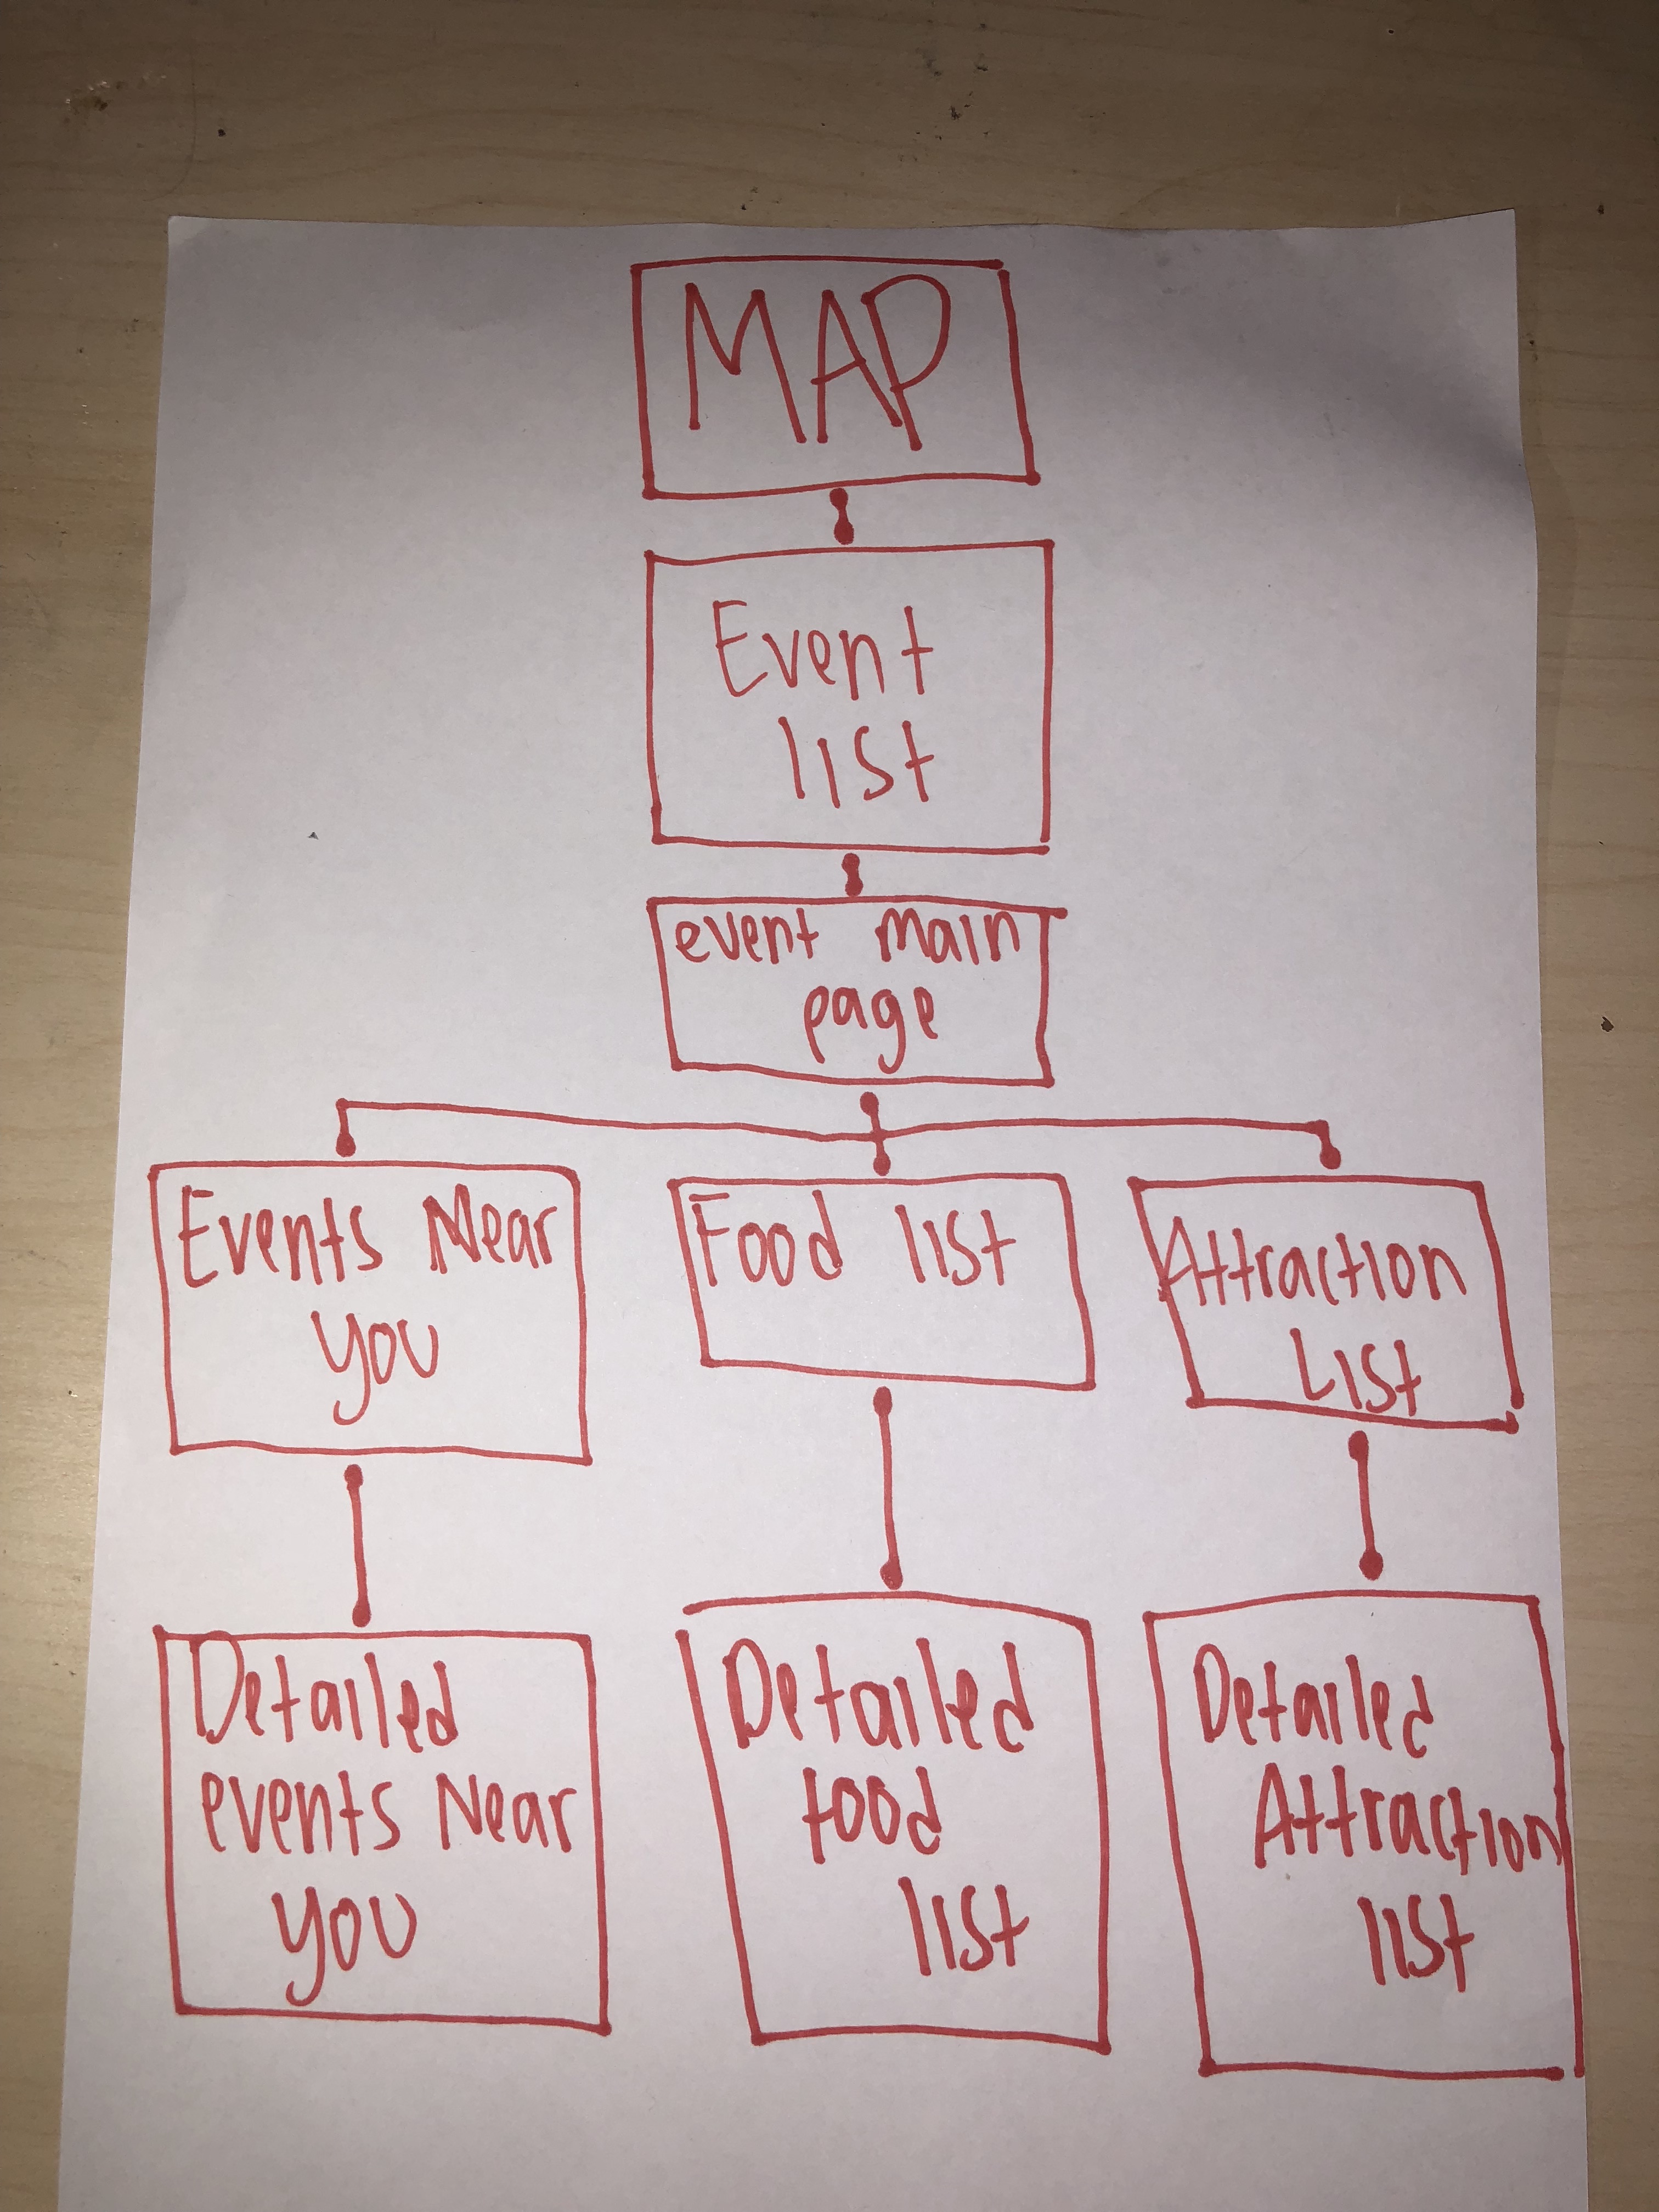 MAP
Event
list
event main
page
Events Near
you
Food list
Attraction
List
Detailed
events Near
you
Detailed
food
list
Detailed
Attraction
list